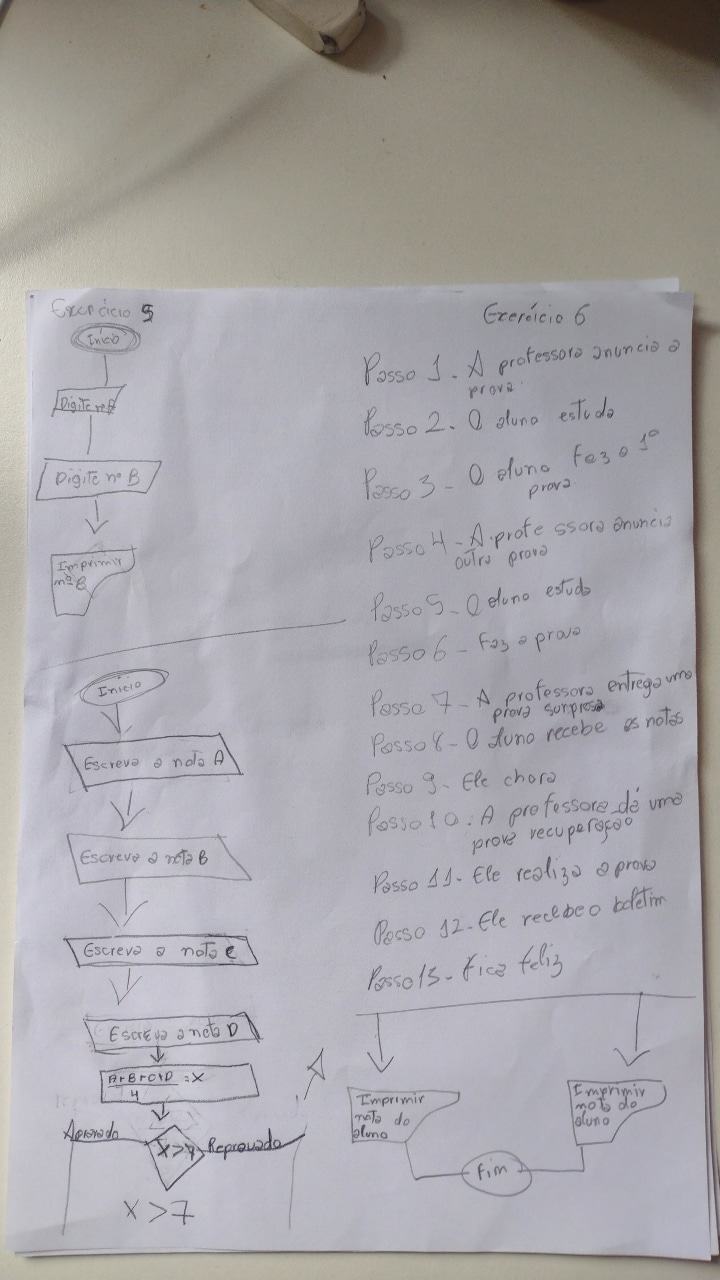 Exercício 5
Início
Digite nº
Digite nº B
Imprimir
nº
Início
Escreva a nota A
Escreva a nota B
Escreva a nota C
Escreva a nota D
A+B+C+D = X
4
X>7
Aprovado
Reprovado
X >7
Exercício 6
Passo 1 - A professora anuncia a
prova.
Passo 2 - O aluno estuda
Passo 3 - O aluno faz a 1º
prova
Passo 4 - A professora anuncia
outra prova
Passo 5 - O aluno estuda
Passo 6 - Faz a prova
Passo 7 - A professora entrega uma
prova surpresa
Passo 8 - O aluno recebe as notas
Passo 9 - Ele chora
Passo 10 . A professora dá uma
prova recuperação
Passo 11 - Ele realiza a prova
Passo 12 - Ele recebe o boletim
Passo 13 - Fica feliz
Imprimir
nota do
aluno
Imprimir
nota do
aluno
fim